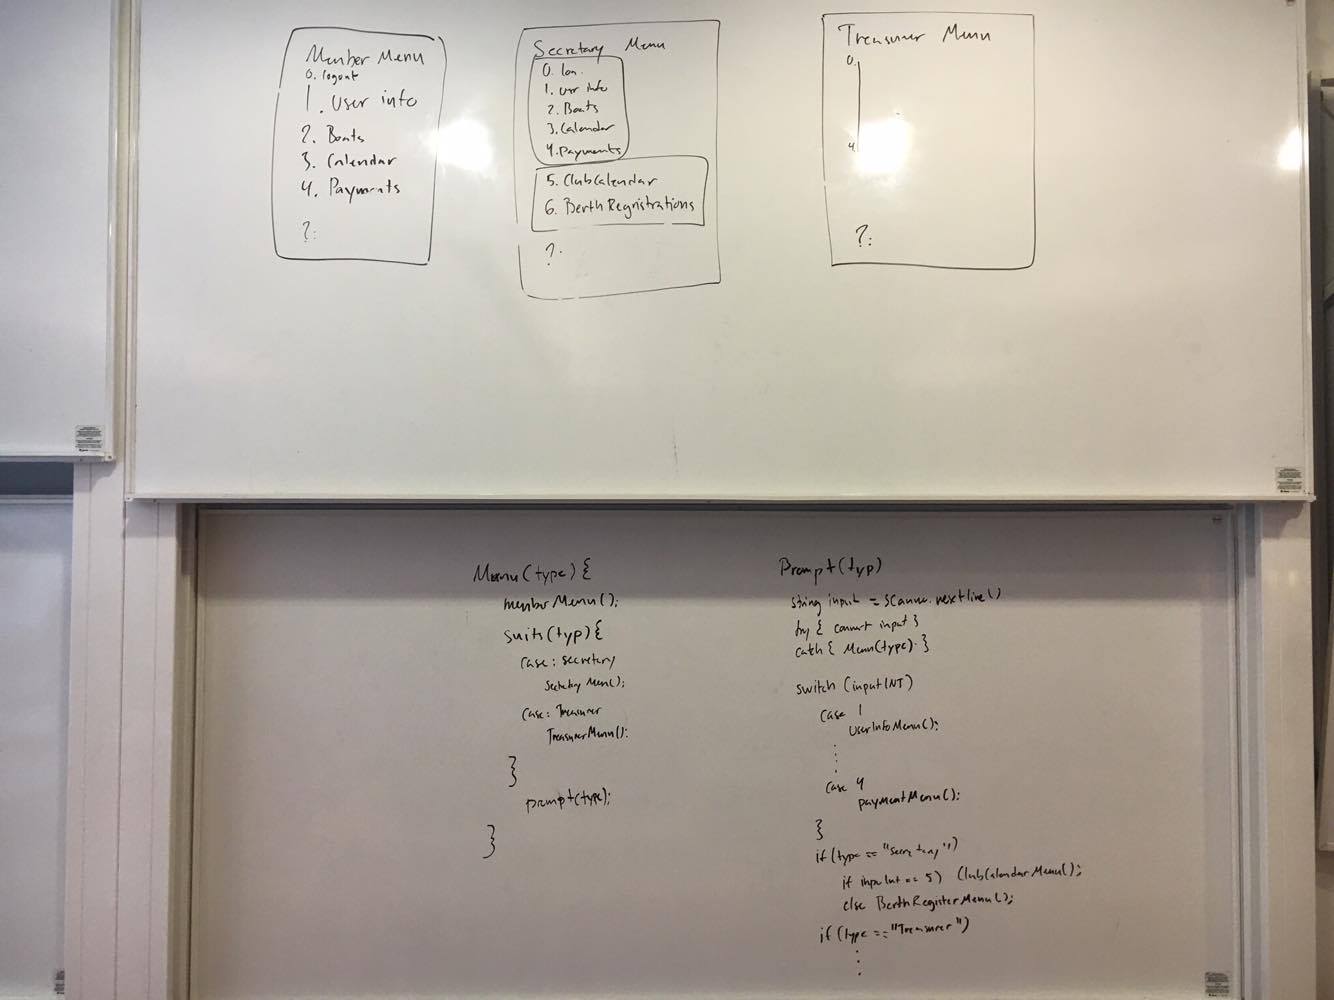 Member Menu
0. logout
1. User info
2. Boats
3. Calendar
4. Payments
?:
Secretary Menu
0. lon.
1. usr info
2. Boats
3. Calendar
4. Payments
5. ClubCalendar
6. Berth Regnistrations
?.
Treasurer Menu
0.
4.
?:
Menu(type){
memberMenu();
suits(typ){
case: secretary
Secretary Menu();
case: Treasurer
TreasurerMenu();
}
prompt(type);
}
Prompt(typ)
string input = scanner.nextline()
try { convert input }
cath { Menu(type). }
switch (inputINT)
case 1
userInfoMenu();
case 4
paymentMenu();
}
if (type == "Secretary")
if inputInt == 5) ClubCalendarMenu();
else BerthRegisterMenu();
if (type == "Treasurer")